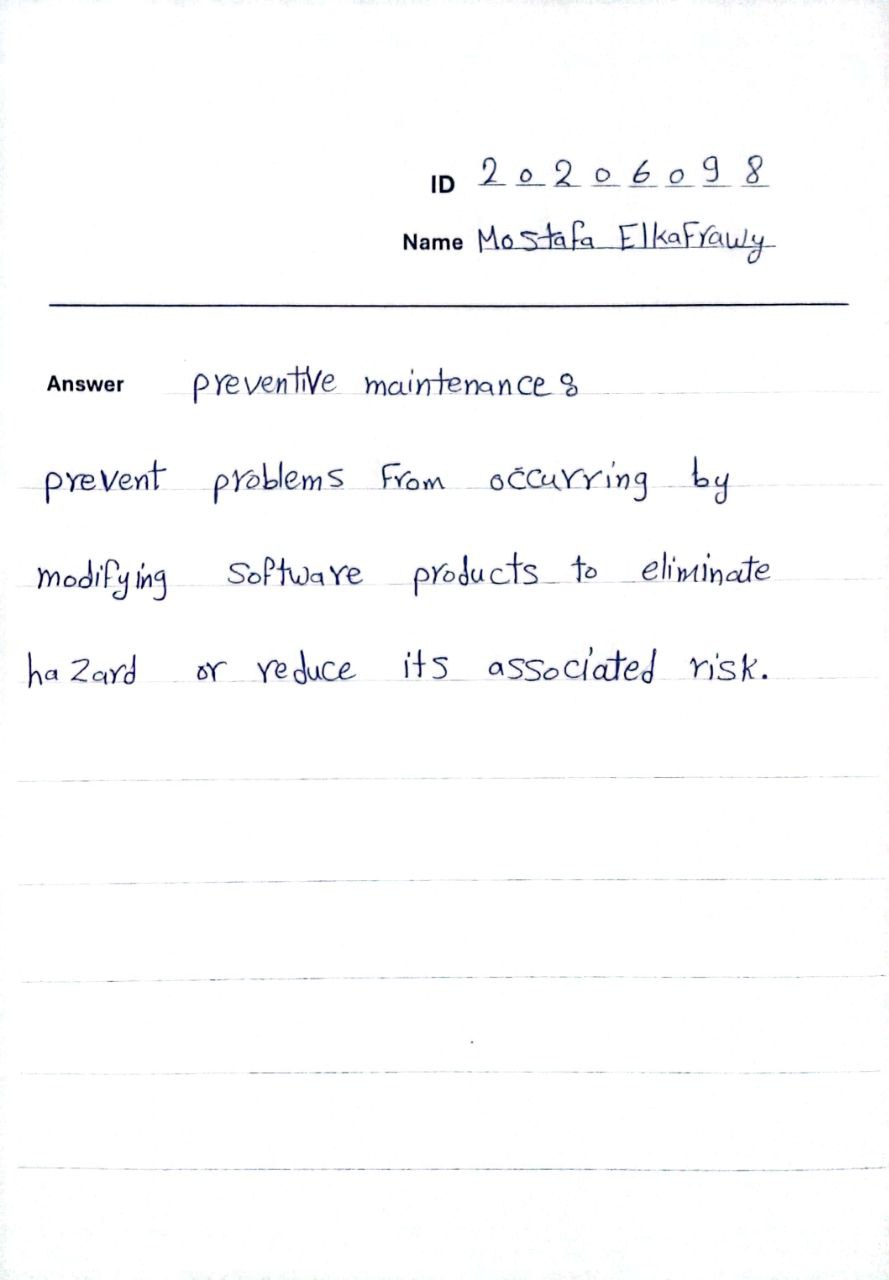 ID 20206098
Name Mostafa Elkafrawy
Answer preventive maintenance :
prevent problems from occurring by
modifying software products to eliminate
hazard or reduce its associated risk.